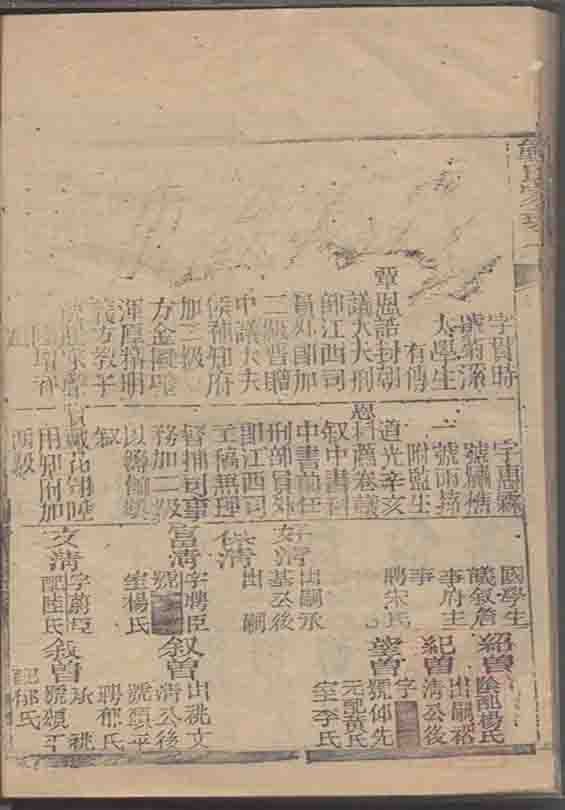 字賢時
號菊溪
太學生
有傳
覃恩誥封朝
議大夫刑
部江西司
員外郎加
三級晉贈
中議大夫
候補知府
加三級
渾厚精明
義方教子
字惠霖
號鱸樵
一號雨
附監生
道光辛亥
恩科薦卷議
叙中書科
中書前任
刑部員外
郎江西司
督捕司事
務加二級
以籌餉
叙
賞戴花翎
用知府加
兩級
國學生
議叙詹
事府主
事
聘宋氏
安清
出嗣承
基公後
保清
出嗣
富清
字聘臣
號
室楊氏
文清
字蔚臣
配陸氏
紹曾
陰配楊氏
紀曾
出嗣裕
清公後
望曾
字
號仰先
元配章氏
室李氏
叙曾
出祧文
清公後
號頌平
聘郁氏
叙曾
承祧
號頌平
配郁氏